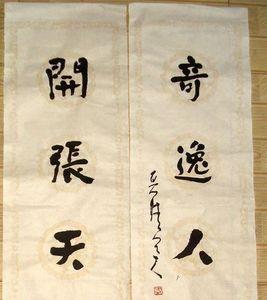 開張天
奇逸人